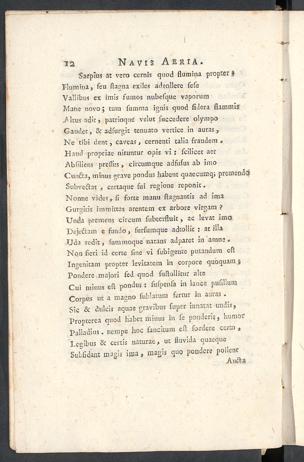 12 NAVIS AERIA.
Saepius at vero cernis quod flumina propter,
Flumina, seu stagna exiles adtollere sese
Vallibus ex imis fumos nubesque vaporum
Mane novo; tum summa ignis quod sidera flammis
Altus adit, patrioque velut succedere olympo
Gaudet, & adsurgit tenuato vertice in auras,
Ne tibi dent, caveas, cernenti talia fraudem.
Haud propriae nituntur opis vi: scilicet aer
Absiliens pressis, circumque adfusus ab imo
Cuncta, minus grave pondus habent quaecumq; premendo
Subvectat, certaque sui regione reponit.
Nonne vides, si forte manu stagnantis ad ima
Gurgitis immittas arentem ex arbore virgam?
Unda premens circum subterfluit, ac levat imo
Dejectam e fundo, sursumque adtollit: at illa
Uda redit, summoque natans adparet in amne.
Non fieri id certe sine vi subigente putandum est
Ingenitam propter levitatem in corpore quoquam;
Pondere majori sed quod sustollitur alte
Cui minus est pondus: suspensa in lance pusillum
Corpus ut a magno sublatum fertur in auras.
Sic & dulcis aquae gravibus super innatat undis,
Propterea quod habet minus in se ponderis, humor
Palladius. nempe hoc sancitum est foedere certo,
Legibus & certis naturae, ut fluvida quaeque
Subsidant magis ima, magis quo pondere pollent
Aucta